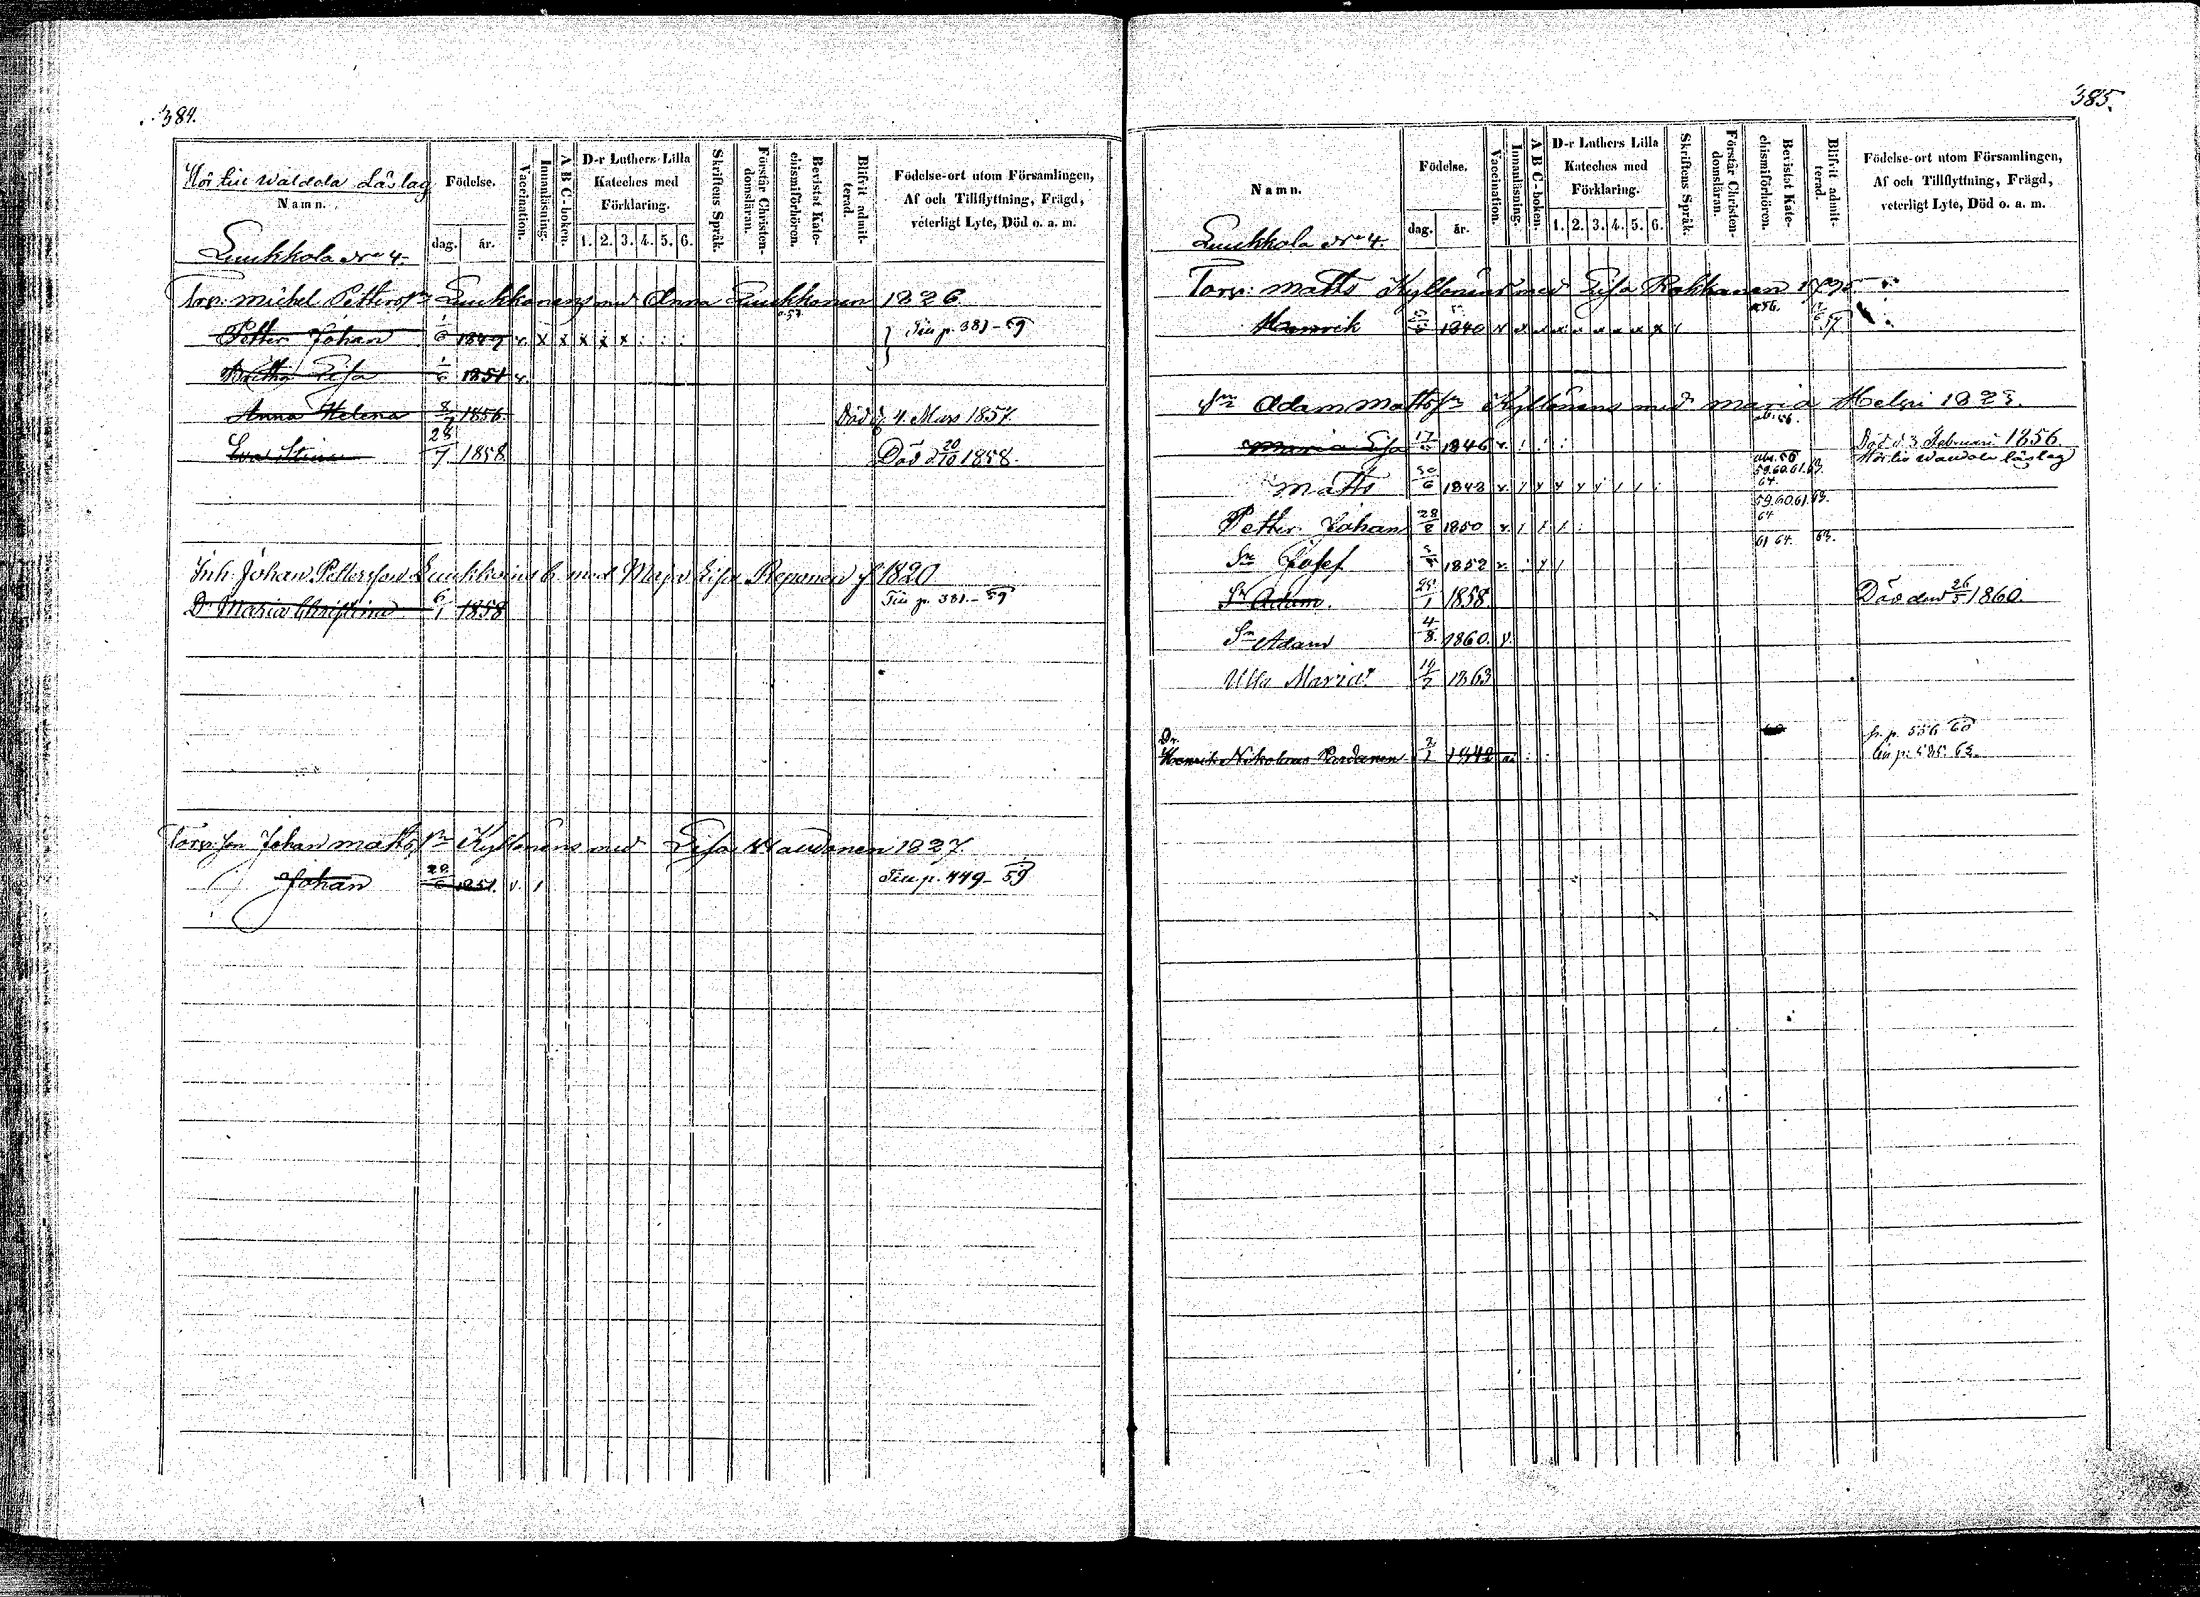 384.
Hör till Waldola Läslag
Namn.
Födelse.
dag. år.
Vaccination.
Innanläsning.
A B C-boken.
D-r Luthers Lilla Kateches med Förklaring.
1. 2. 3. 4. 5. 6.
Skriftens Språk.
Förstår Christendomsläran.
Bevistat Katechismiförhören.
Blifvit admitterad.
Födelse-ort utom Församlingen,
Af och Tillflyttning, Frägd,
veterligt Lyte, Död o. a. m.
Luukkola No 4.
Torp. Michel Pettersson Luukkonens med Anna Luukkonen 1826
Petter Johan 1/6 1847 v. x x x x x Till p. 381-59
Lisa 1851 v.
Anna Helena 8/7 1856. Död d. 4. Mars 1857.
Eva Stina 28/7 1858 Död d. 20/10 1858.
Inh. Johan Pettersson Luukkoins b. med Maja Lisa Reponen f. 1820
D. Maria Christina 6/1 1858 Till p. 381-59
Torp. son Johan Mattsson Kyllönens med Lisa Waudonen 1827.
Johan 1851. v. Till p. 449-59
385.
Namn.
Födelse.
dag. år.
Vaccination.
Innanläsning.
A B C-boken.
D-r Luthers Lilla Kateches med Förklaring.
1. 2. 3. 4. 5. 6.
Skriftens Språk.
Förstår Christendomsläran.
Bevistat Katechismiförhören.
Blifvit admitterad.
Födelse-ort utom Församlingen,
Af och Tillflyttning, Frägd,
veterligt Lyte, Död o. a. m.
Luukkola No 4.
Torp: Matts Kyllönens med Lisa
Henrik 1840 v x x x x x x x x
Adam Mattsson Kyllönens med Maria
Maria Lisa 17 1846 v. Död d. 3 Februari 1856.
Hör till Waldola läslag
Matts 1848 v. 59.60.61.63. 64.
Petter Johan 28/8 1850 v. 59.60.61.63. 64
Sn Josef 1852 v. 61 64. 63.
Sn Adam. 25/1 1858. Död den 26/5 1860.
Sn Adam 4/8 1860. v.
Ulla Maria 1863
Dr. Henrik Nikolaus 1842 fr. p. 556 60
till p. 585. 63.